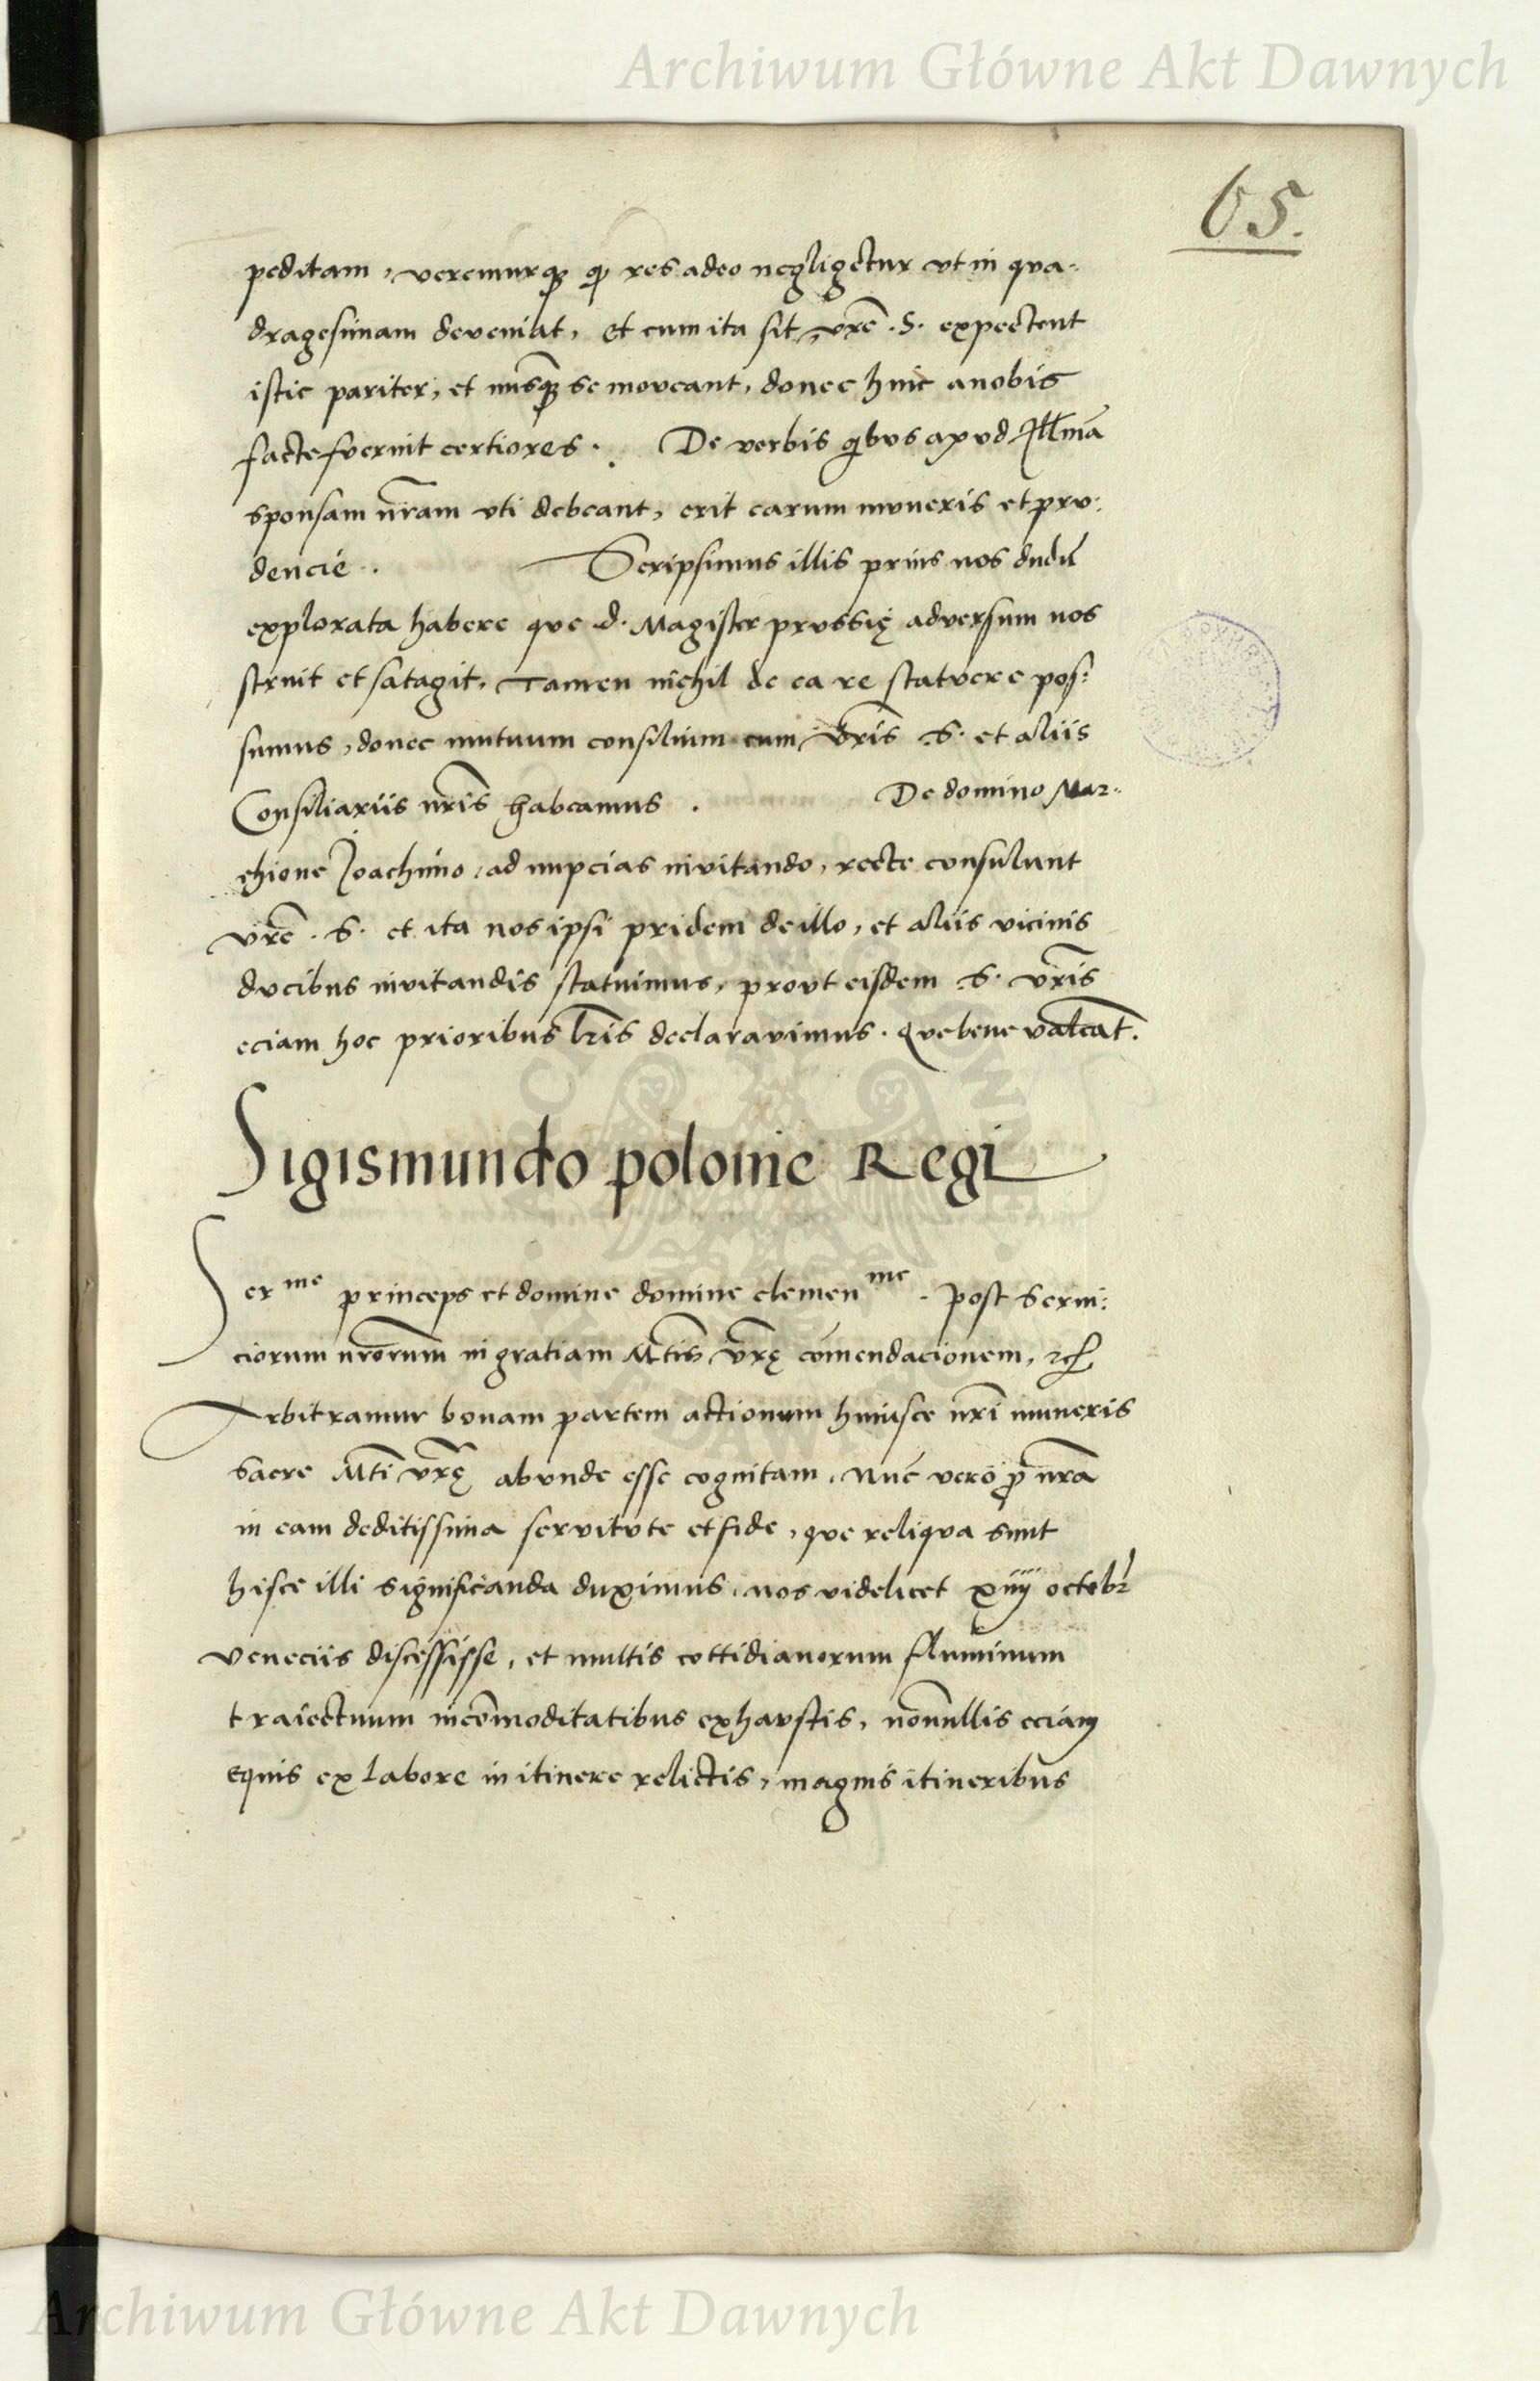 Archiwum Główne Akt Dawnych
65.
peditam, veremurqꝫ ꝙ res adeo negligetur ut in qua-
dragesimam deveniat, et cum ita sit, vr̄e .S. expectent
istic pariter, et nusq̄ꝫ se moveant, donec hinc a nobis
facte fuerint certiores. De verbis qibus apud Ill̄mā
sponsam nr̄am uti debeant, erit earum muneris et pru:
dencie. Scripsimus illis prius nos dudū
explorata habere que d. Magister prussię adversum nos
struit et satagit, Tamen nichil de ea re statuere pos:
sumus, donec mutuum consilium cum vr̄is .S. et aliis
Consiliariis nr̄is habeamus. De domino Mar-
chione Joachimo, ad nupcias invitando, recte consulunt
vr̄e .S. et ita nos ipsi pridem de illo, et aliis vicinis
ducibus invitandis statuimus, prout eisdem .S. vr̄is
eciam hoc prioribus lr̄is declaravimus. Que bene valeāt.
Sigismundo polonie Regi
Serme princeps et domine domine clemenme. Post servi:
ciorum nr̄orum in gratiam Mt̄is vr̄ę cōmendacionem, etc̄
Arbitramur bonam partem actionum huiusce nr̄i muneris
sacre Mt̄i vr̄ę abunde esse cognitam. Nūc vero ꝓ nr̄a
in eam deditissima servitute et fide, que reliqua sunt
hisce illi significanda duximus, nos videlicet xiiij octobr̄
Veneciis discessisse, et multis cottidianorum fluminum
traiectuum incōmoditatibus exhaustis, nōnullis eciam
equis ex labore in itinere relictis, magnis itineribus
Archiwum Główne Akt Dawnych